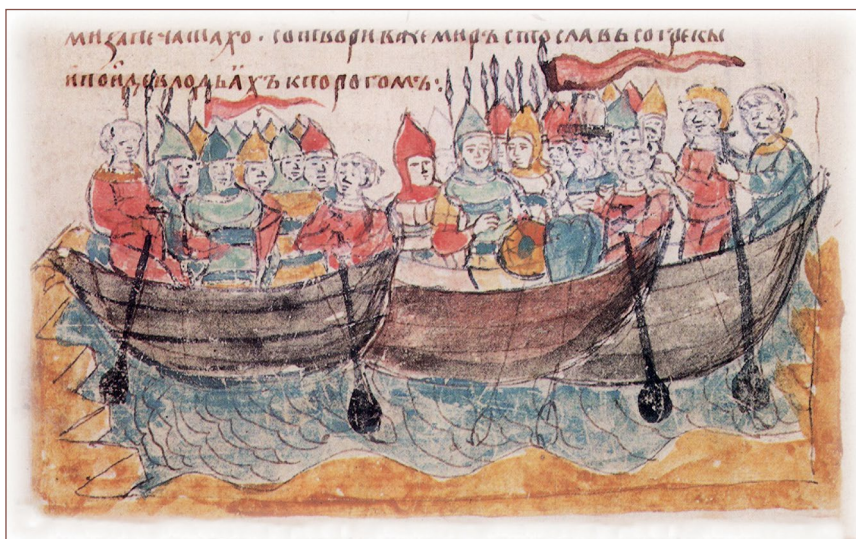 ми запечатахо · сотворивже миръ стославъ со греки
и поиде в лодьѧхъ к порогомъ: